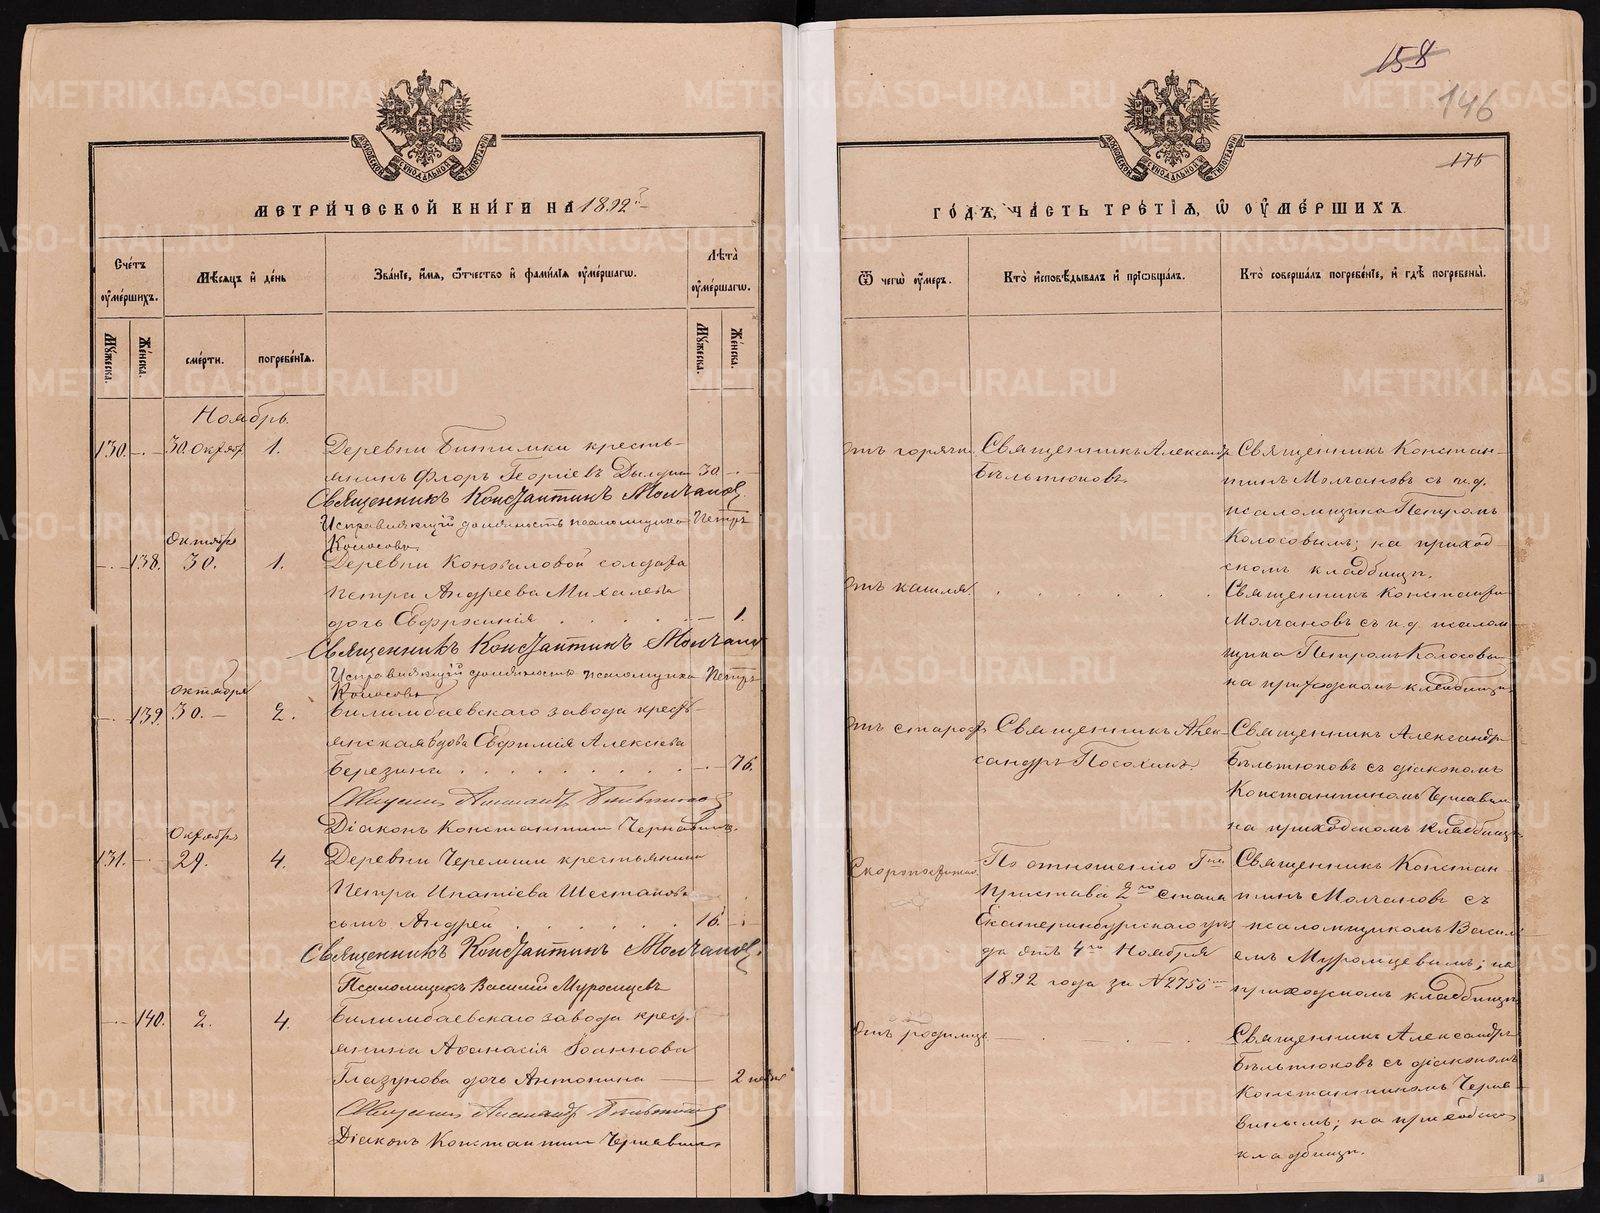 158
146
175
МЕТРИ́ЧЕСКОЙ КНИ́ГИ НА 1892й
Сче́тъ оу҆ме́ршихъ.
Мѣ́сяцъ и҆ де́нь
Зва́нїе, и҆́мя, ѿ́чество и҆ фами́лїя оу҆ме́ршагѡ.
Лѣта̀ оу҆ме́ршагѡ.
Мꙋ́жеска.
Же́нска.
сме́рти.
погребе́нїѧ.
Мꙋ́жеска.
Же́нска.
Ноябрь.
130. — 30 Октяб. 1. Деревни Битимки кресть-
янинъ Флоръ Георгіевъ 30 —
Священникъ Константинъ Молчановъ
Исправляющій должность псаломщика Петръ
Колосовъ
Октября
— 138. 30. 1. Деревни Коноваловой солдата
Петра Андреева Михалева
дочь Евфросинія — 1.
Священникъ Константинъ Молчановъ
Исправляющій должность псаломщика Петръ
Колосовъ
Октября
— 139. 30. — 2. Билимбаевскаго завода кресть-
янская вдова Евфимія Алексѣева
Березина — 76.
Священникъ Александръ Бѣльтюковъ
Діаконъ Константинъ Чернавинъ.
Октября
131. — 29. 4. Деревни Черемши крестьянина
Петра Ипатіева Шестакова
сынъ Андрей 16. —
Священникъ Константинъ Молчановъ.
Псаломщикъ Василій Муромцевъ
— 140. 2. 4. Билимбаевскаго завода крест-
янина Аѳанасія Іоаннова
Глазунова дочь Антонина — 2 недѣл
Священникъ Александръ Бѣльтюковъ
Діаконъ Константинъ Чернавинъ
ГО́ДЪ, ЧА́СТЬ ТРЕ́ТЇЯ, Ѡ҆ ОУ҆МЕ́РШИХЪ
Ѿ чегѡ̀ оу҆́меръ.
Кто̀ и҆сповѣ́дывалъ и҆ прїѡбща́лъ.
Кто̀ соверша́лъ погребе́нїе, и҆ гдѣ̀ погребены̀.
Отъ горячк.
Священникъ Александръ
Бѣльтюковъ.
Священникъ Констан-
тинъ Молчановъ съ и.д.
псаломщика Петромъ
Колосовымъ; на приход-
скомъ кладбищѣ.
Отъ кашля.
Священникъ Константи
Молчановъ съ и.д. псалом-
щика Петромъ Колосовы
на приходскомъ кладбищѣ
Отъ старост
Священникъ Алек-
сандръ Посохинъ.
Священникъ Александръ
Бѣльтюковъ съ діакономъ
Константиномъ Чернавин
на приходскомъ кладбищѣ
Скоропостиж.
По отношенію Гна
Пристава 2го стана
Екатеринбургскаго уѣз
да отъ 4го Ноября
1892 года за № 2755
Священникъ Констан-
тинъ Молчановъ съ
псаломщикомъ Васил
емъ Муромцевымъ; на
приходскомъ кладбищѣ
Отъ родимца
Священникъ Александръ
Бѣльтюковъ съ діакономъ
Константиномъ Черна-
винымъ; на приходско
кладбищѣ.
METRIKI.GASO-URAL.RU